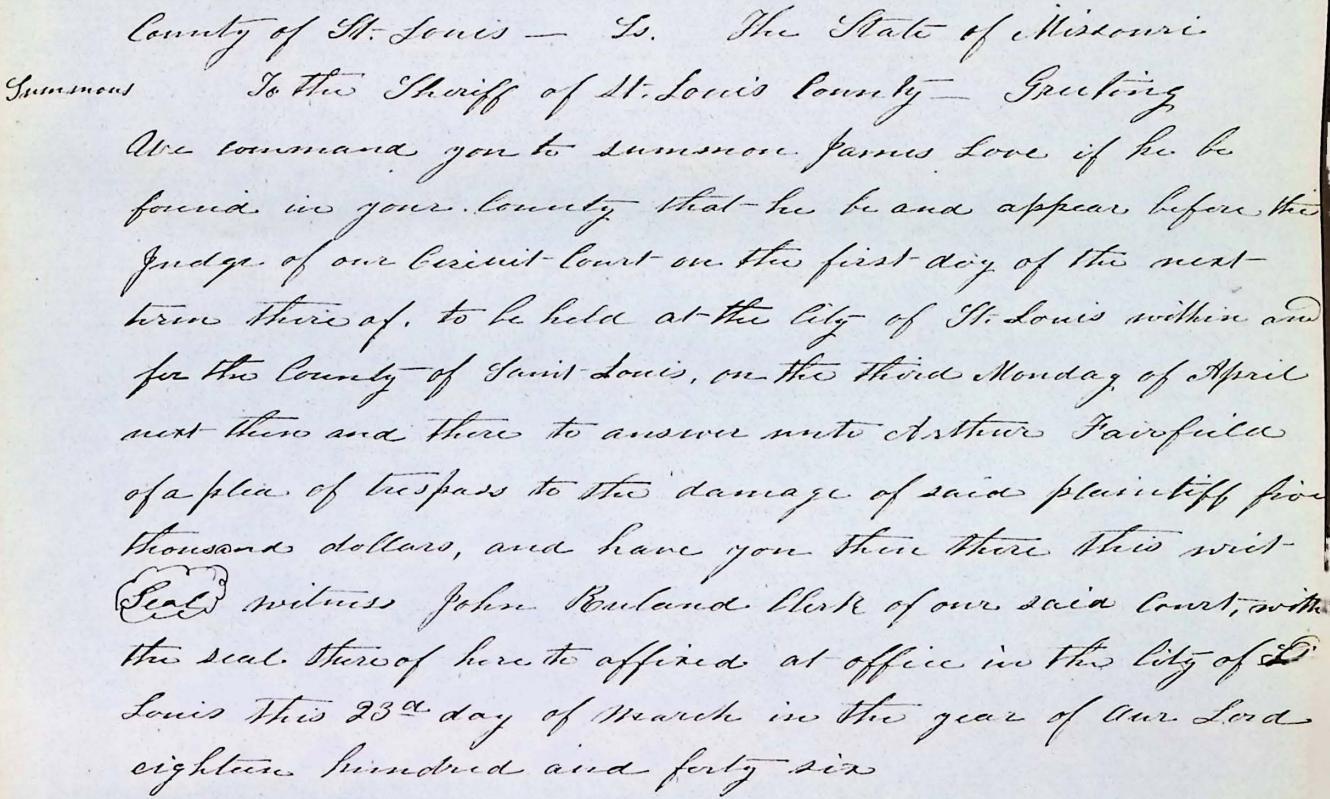 County of St. Louis — Ss. The State of Missouri
Summons To the Sheriff of St. Louis County — Greeting
We command you to summon James Love if he be
found in your County that he be and appear before the
Judge of our Circuit Court on the first day of the next
term thereof. to be held at the City of St. Louis within and
for the County of Saint Louis, on the third Monday of April
next then and there to answer unto Arthur Fairfield
of a plea of trespass to the damage of said plaintiff five
thousand dollars, and have you then there this writ
Seal witness John Ruland Clerk of our said Court, with
the seal thereof hereto affixed at office in the City of St
Louis this 23d day of March in the year of our Lord
eighteen hundred and forty six